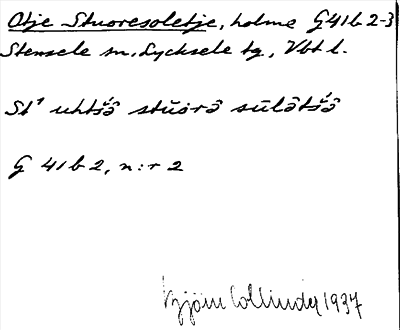 Otje Stuoresoletje, holme G41b2-3
Stensele sn, Lycksele tg, Vbt l.
St¹ uhtšâ stŭorâ sūlâtšâ
G 41b2, n:r 2
Björn Collinder 1937